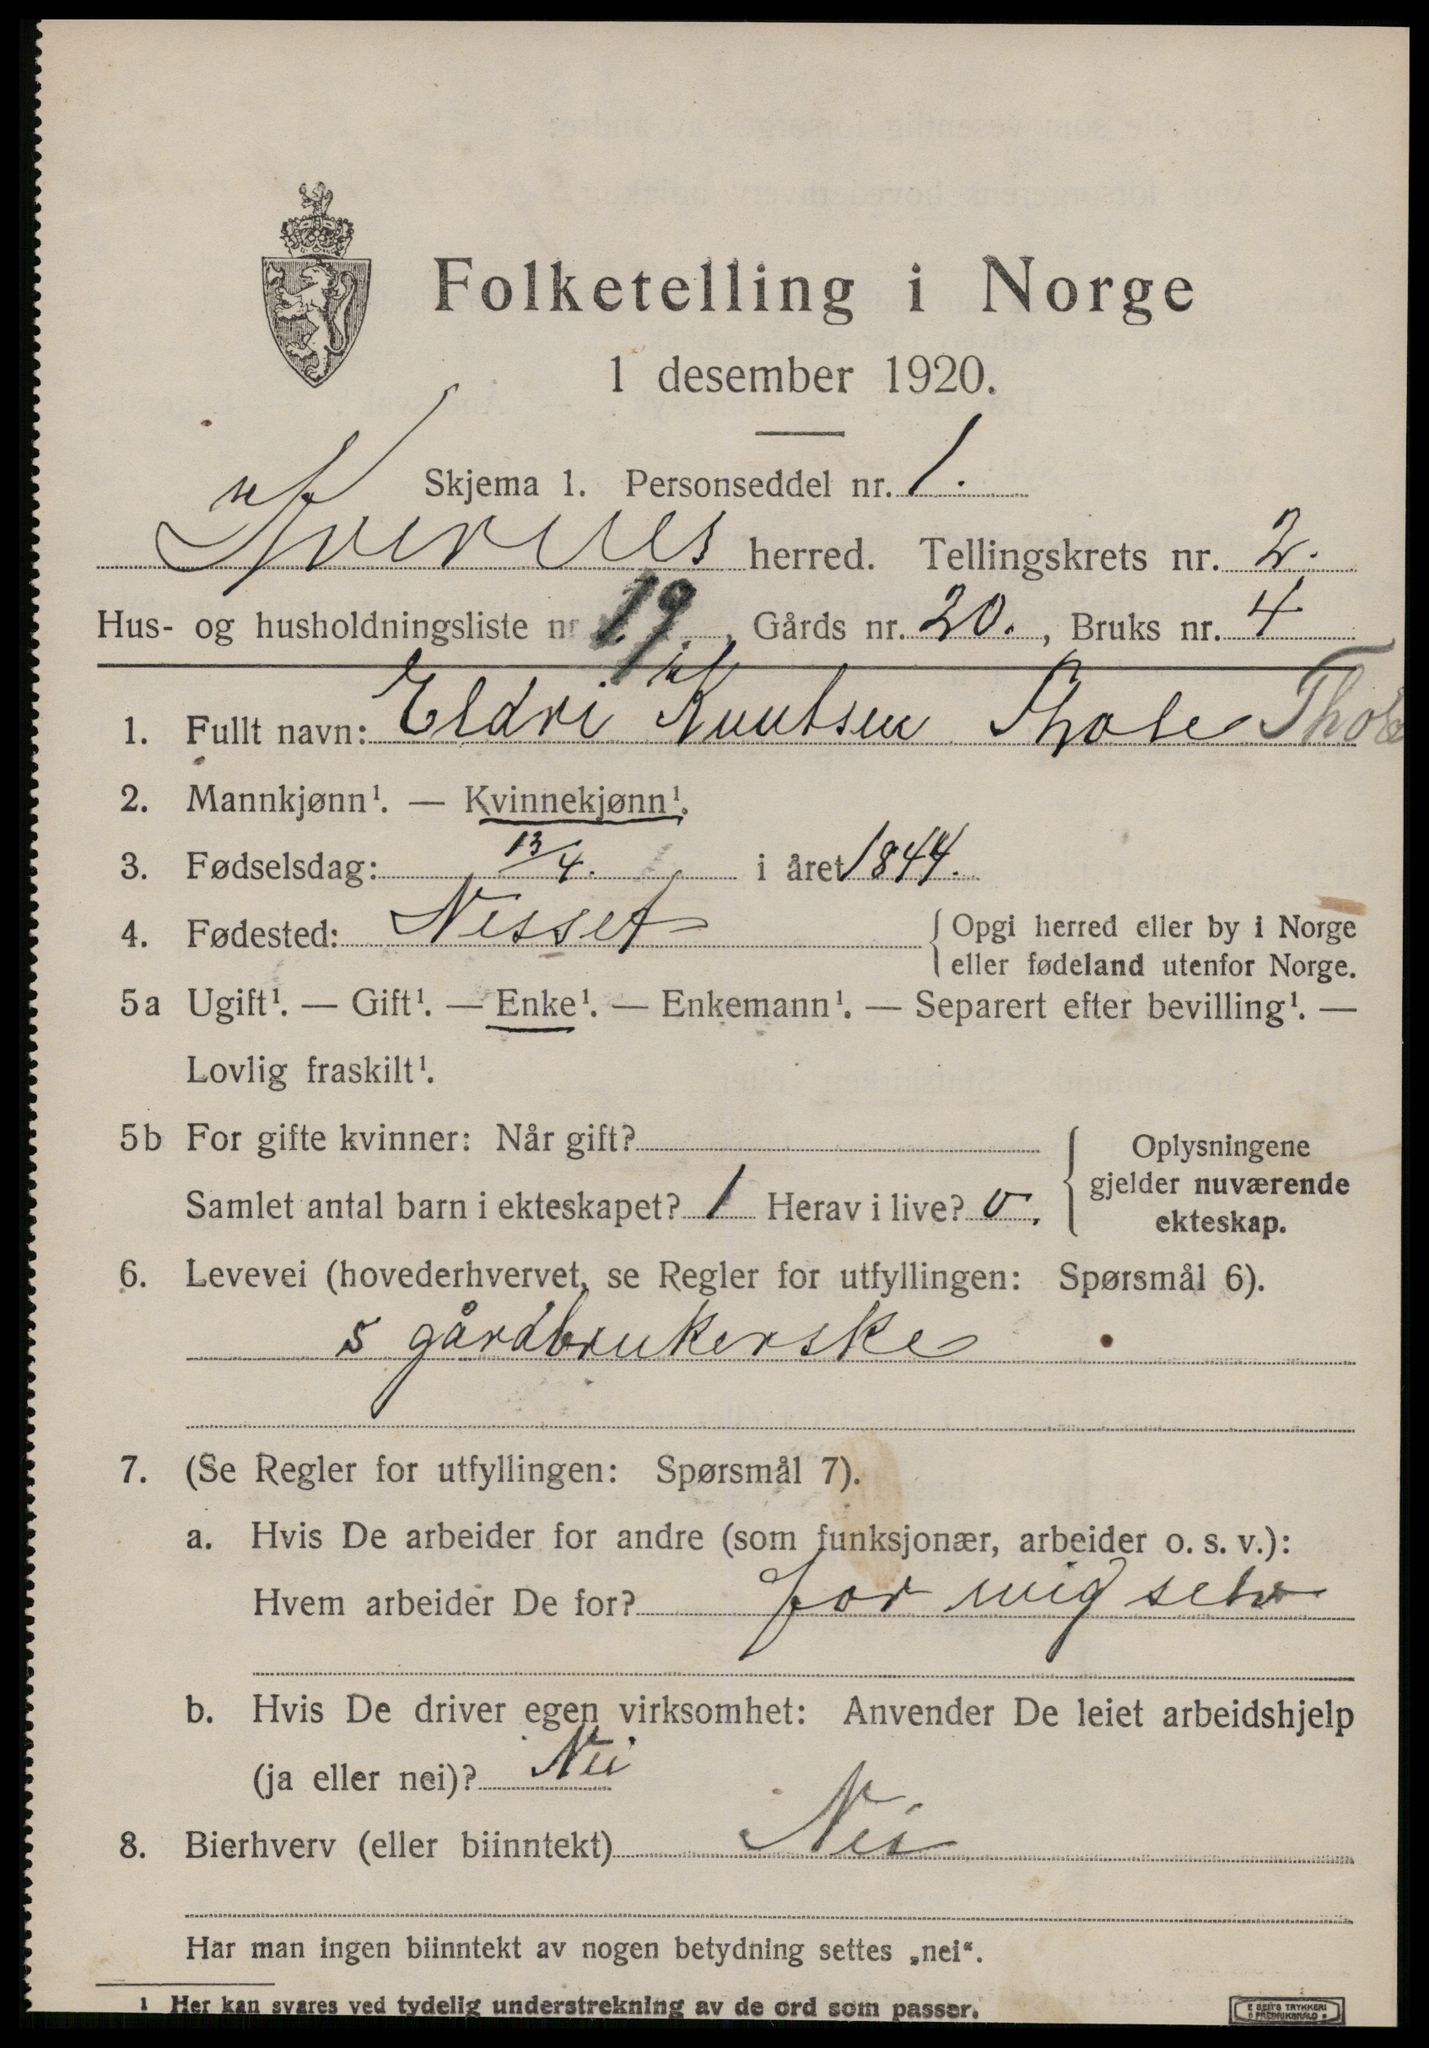 Folketelling i Norge
1 desember 1920.
Skjema 1. Personseddel nr. 1.
Kvernes herred. Tellingskrets nr. 2.
Hus- og husholdningsliste nr 19. , Gårds nr. 20. , Bruks nr. 4
1. Fullt navn: Eldri Knutsen Thole Thole
2. Mannkjønn¹. — Kvinnekjønn¹.
3. Fødselsdag: 13/4. i året 1844.
4. Fødested: Nesset { Opgi herred eller by i Norge
eller fødeland utenfor Norge.
5a Ugift¹. — Gift¹. — Enke¹. — Enkemann¹. — Separert efter bevilling¹. —
Lovlig fraskilt¹.
5b For gifte kvinner: Når gift?
Samlet antal barn i ekteskapet? 1 Herav i live? 0.
{ Oplysningene
gjelder nuværende
ekteskap.
6. Levevei (hovederhvervet, se Regler for utfyllingen: Spørsmål 6).
s gårdbrukerske
7. (Se Regler for utfyllingen: Spørsmål 7).
a. Hvis De arbeider for andre (som funksjonær, arbeider o. s. v.):
Hvem arbeider De for? for mig selv
b. Hvis De driver egen virksomhet: Anvender De leiet arbeidshjelp
(ja eller nei)? Nei
8. Bierhverv (eller biinntekt) Nei
Har man ingen biinntekt av nogen betydning settes „nei“.
¹ Her kan svares ved tydelig understrekning av de ord som passer.
E SEM'S TRYKKERI
FREDRIKSHALD